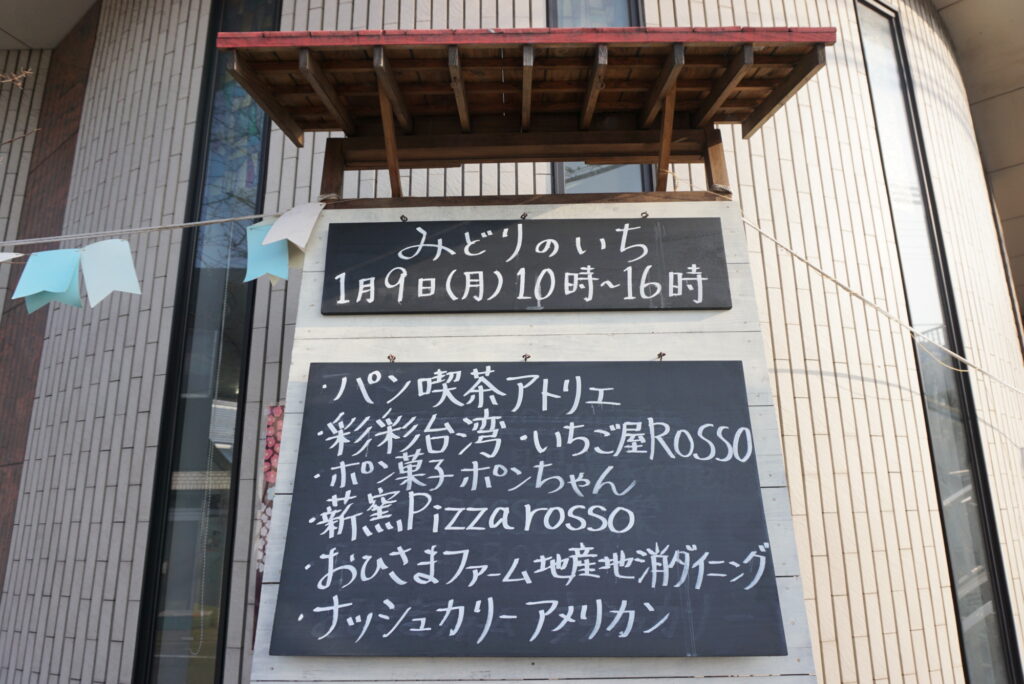 みどりのいち
1月9日(月)10時~16時
・パン喫茶アトリエ
・彩彩台湾・いちご屋ROSSO
・ポン菓子ポンちゃん
・薪窯Pizza rosso
・おひさまファーム地産地消ダイニング
・ナッシュカリーアメリカン